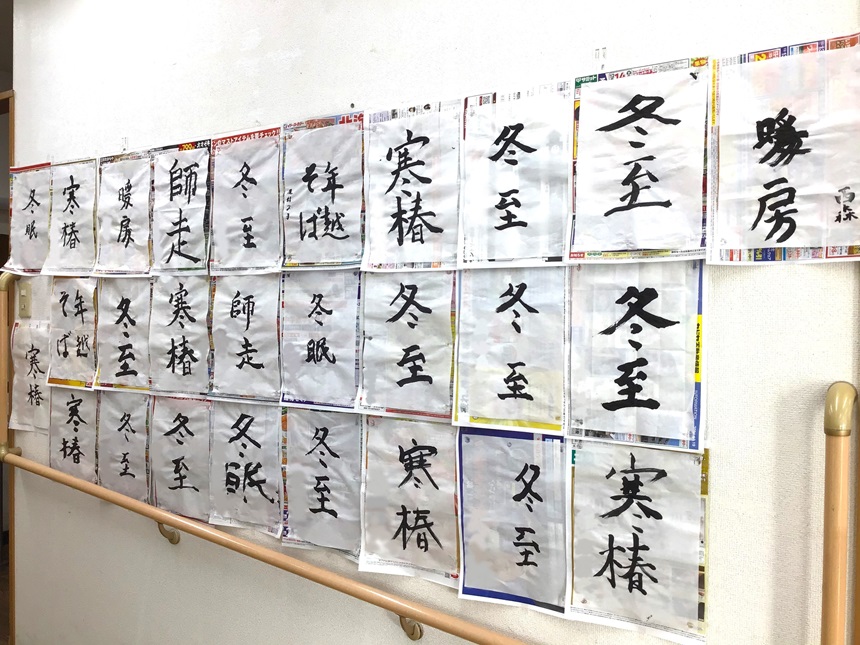 冬眠
寒椿
暖房
師走
冬至
年越
そば
寒椿
冬至
冬至
暖房
寒椿
年越
そば
冬至
寒椿
師走
冬眠
冬至
冬至
冬至
寒椿
冬至
冬至
冬眠
冬至
寒椿
冬至
寒椿